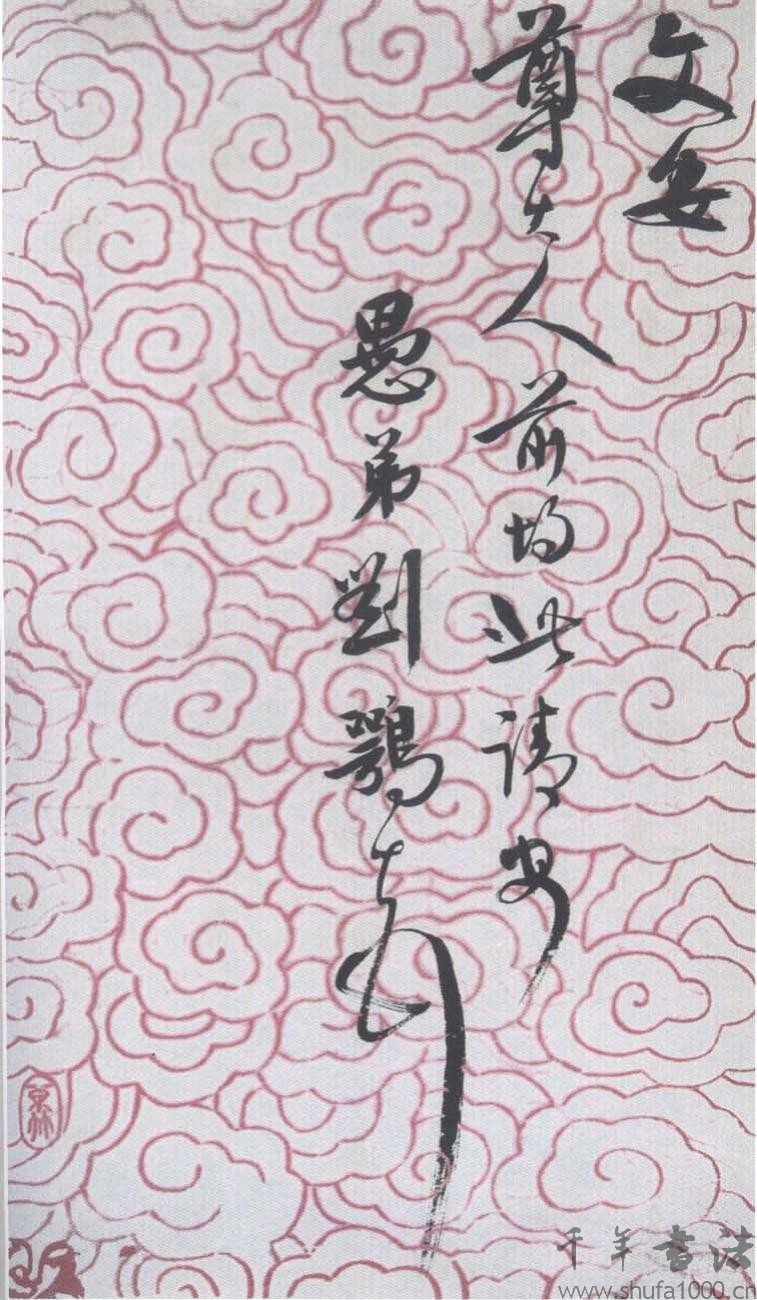 文安
尊大人前均此請安
愚弟劉鶚
千年書法
www.shufa1000.cn